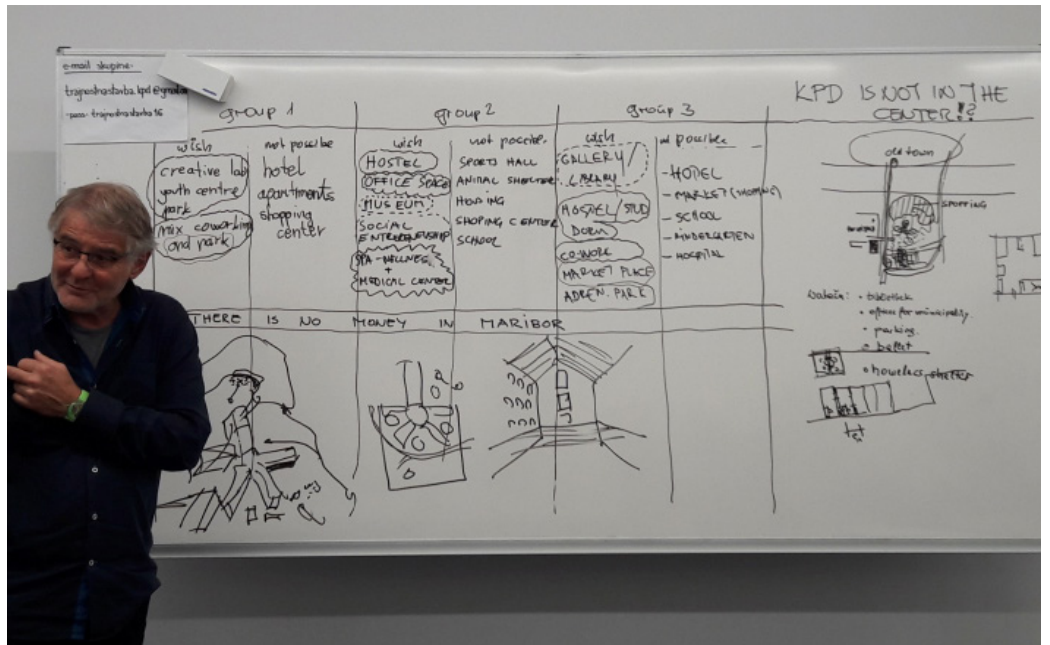 e-mail skupine:
trajnostnastavba.kpd@gmail
- pass: trajnostnastavba16
group 1
wish
creative lab
youth centre
park
mix coworking
and park
not possible
hotel
apartments
shopping
center
group 2
wish
HOSTEL
OFFICE SPACE
MUSEUM
SOCIAL
ENTREPRENEUSHIP
SPA-WELLNES
+
MEDICAL CENTER
not possible.
SPORTS HALL
ANIMAL SHELTER
SHOPING CENTER
SCHOOL
group 3
wish
GALLERY/
LIBRARY
HOSTEL/STUD
DORM
CO-WORK
MARKET PLACE
ADREN. PARK
not possible
- HOTEL
- SCHOOL
- KINDERGARTEN
- HOSPITAL
THERE IS NO MONEY IN MARIBOR
KPD IS NOT IN THE
CENTER!?
old town
• offices for municipality.
• parking.
• buffet
• homeless shelter